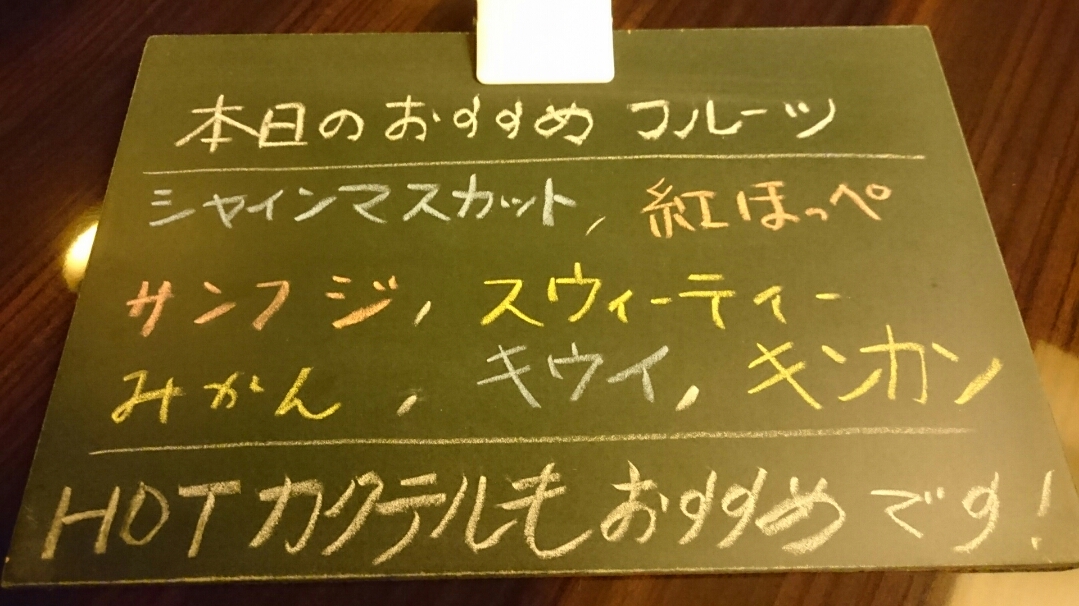 本日のおすすめ フルーツ
シャインマスカット, 紅ほっぺ
サンフジ, スウィーティー
みかん, キウイ, キンカン
HOTカクテルもおすすめです!